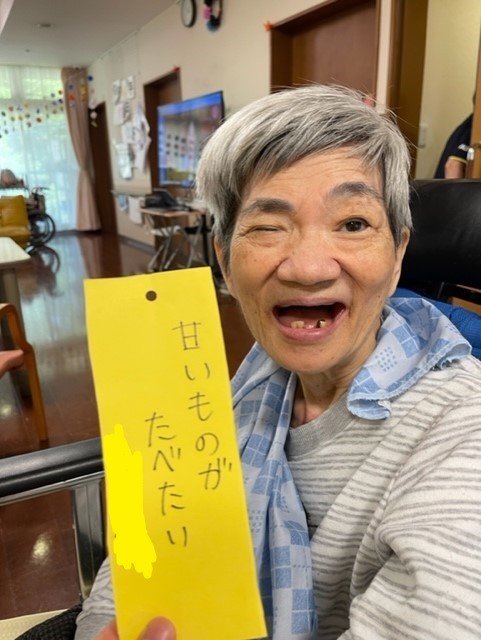 甘いものが
たべたい